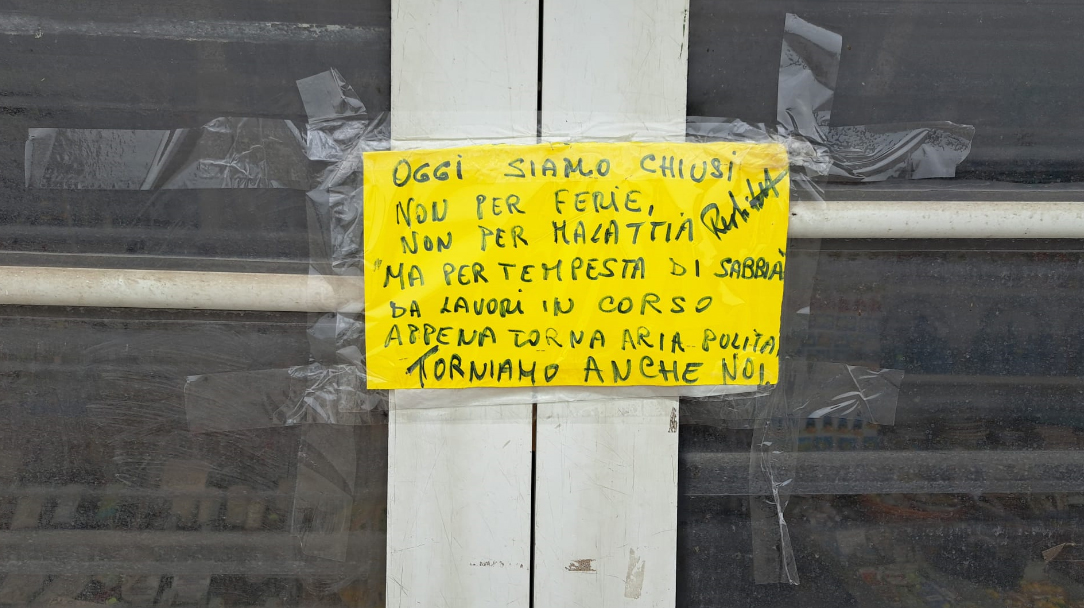 OGGI SIAMO CHIUSI
NON PER FERIE,
NON PER MALATTIA
"MA PER TEMPESTA DI SABBIA
DA LAVORI IN CORSO
APPENA TORNA ARIA POLITA
TORNIAMO ANCHE NOI.